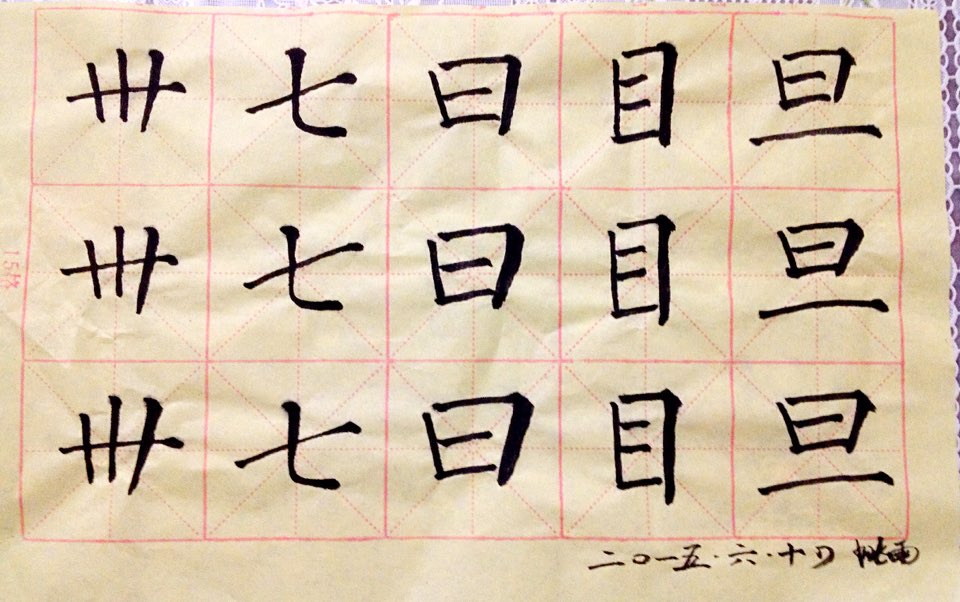 卅七曰目旦
卅七曰目旦
卅七曰目旦
二〇一五·六·十日
15格